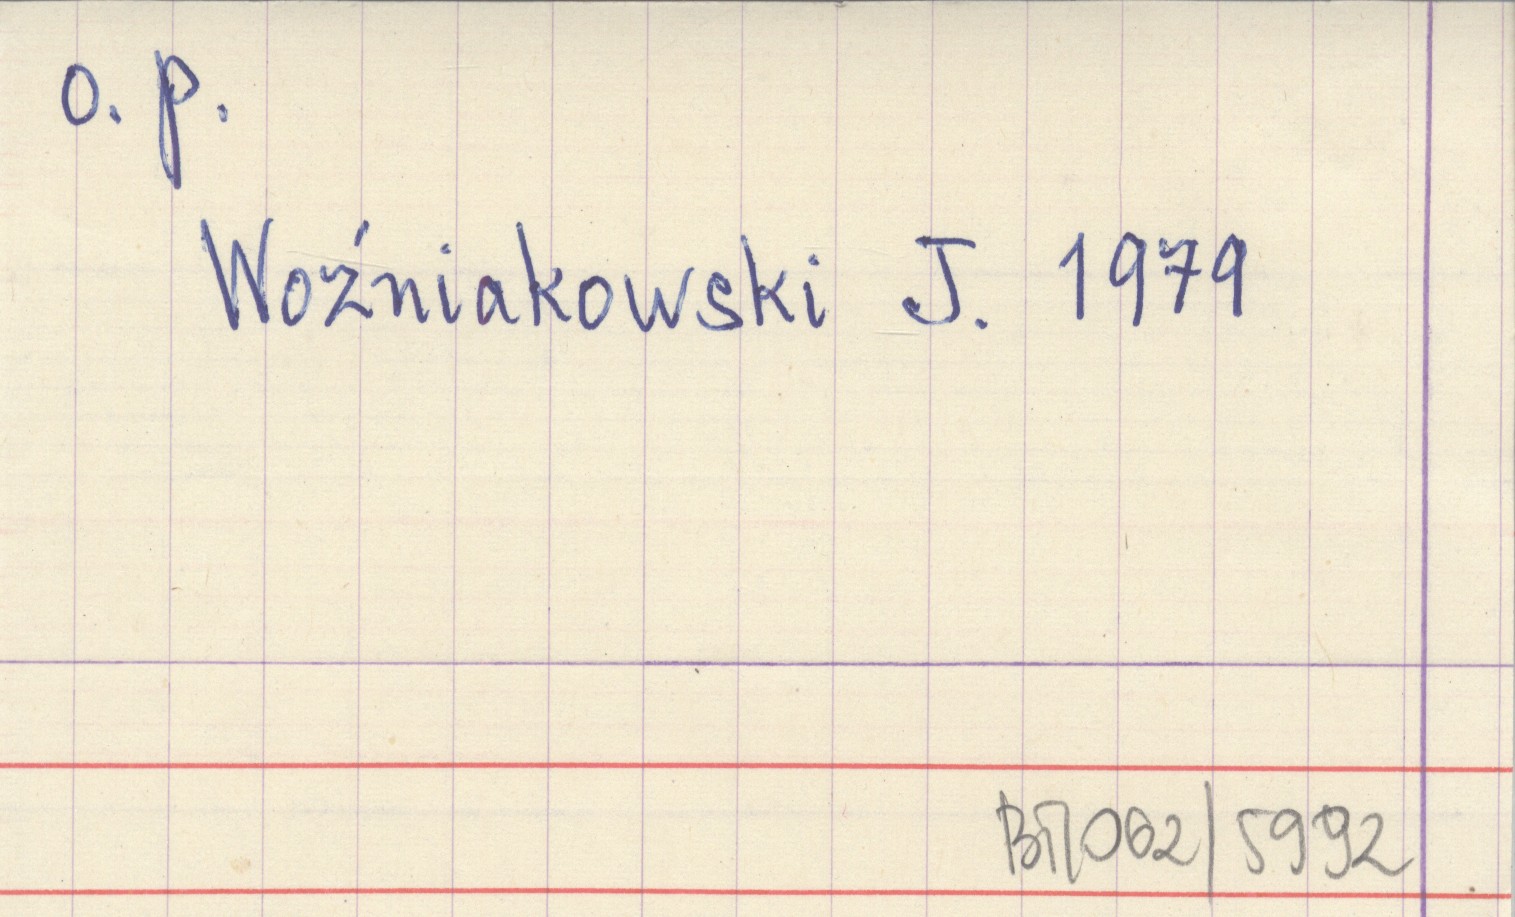 o. p.
Woźniakowski J. 1979
BП062/5992